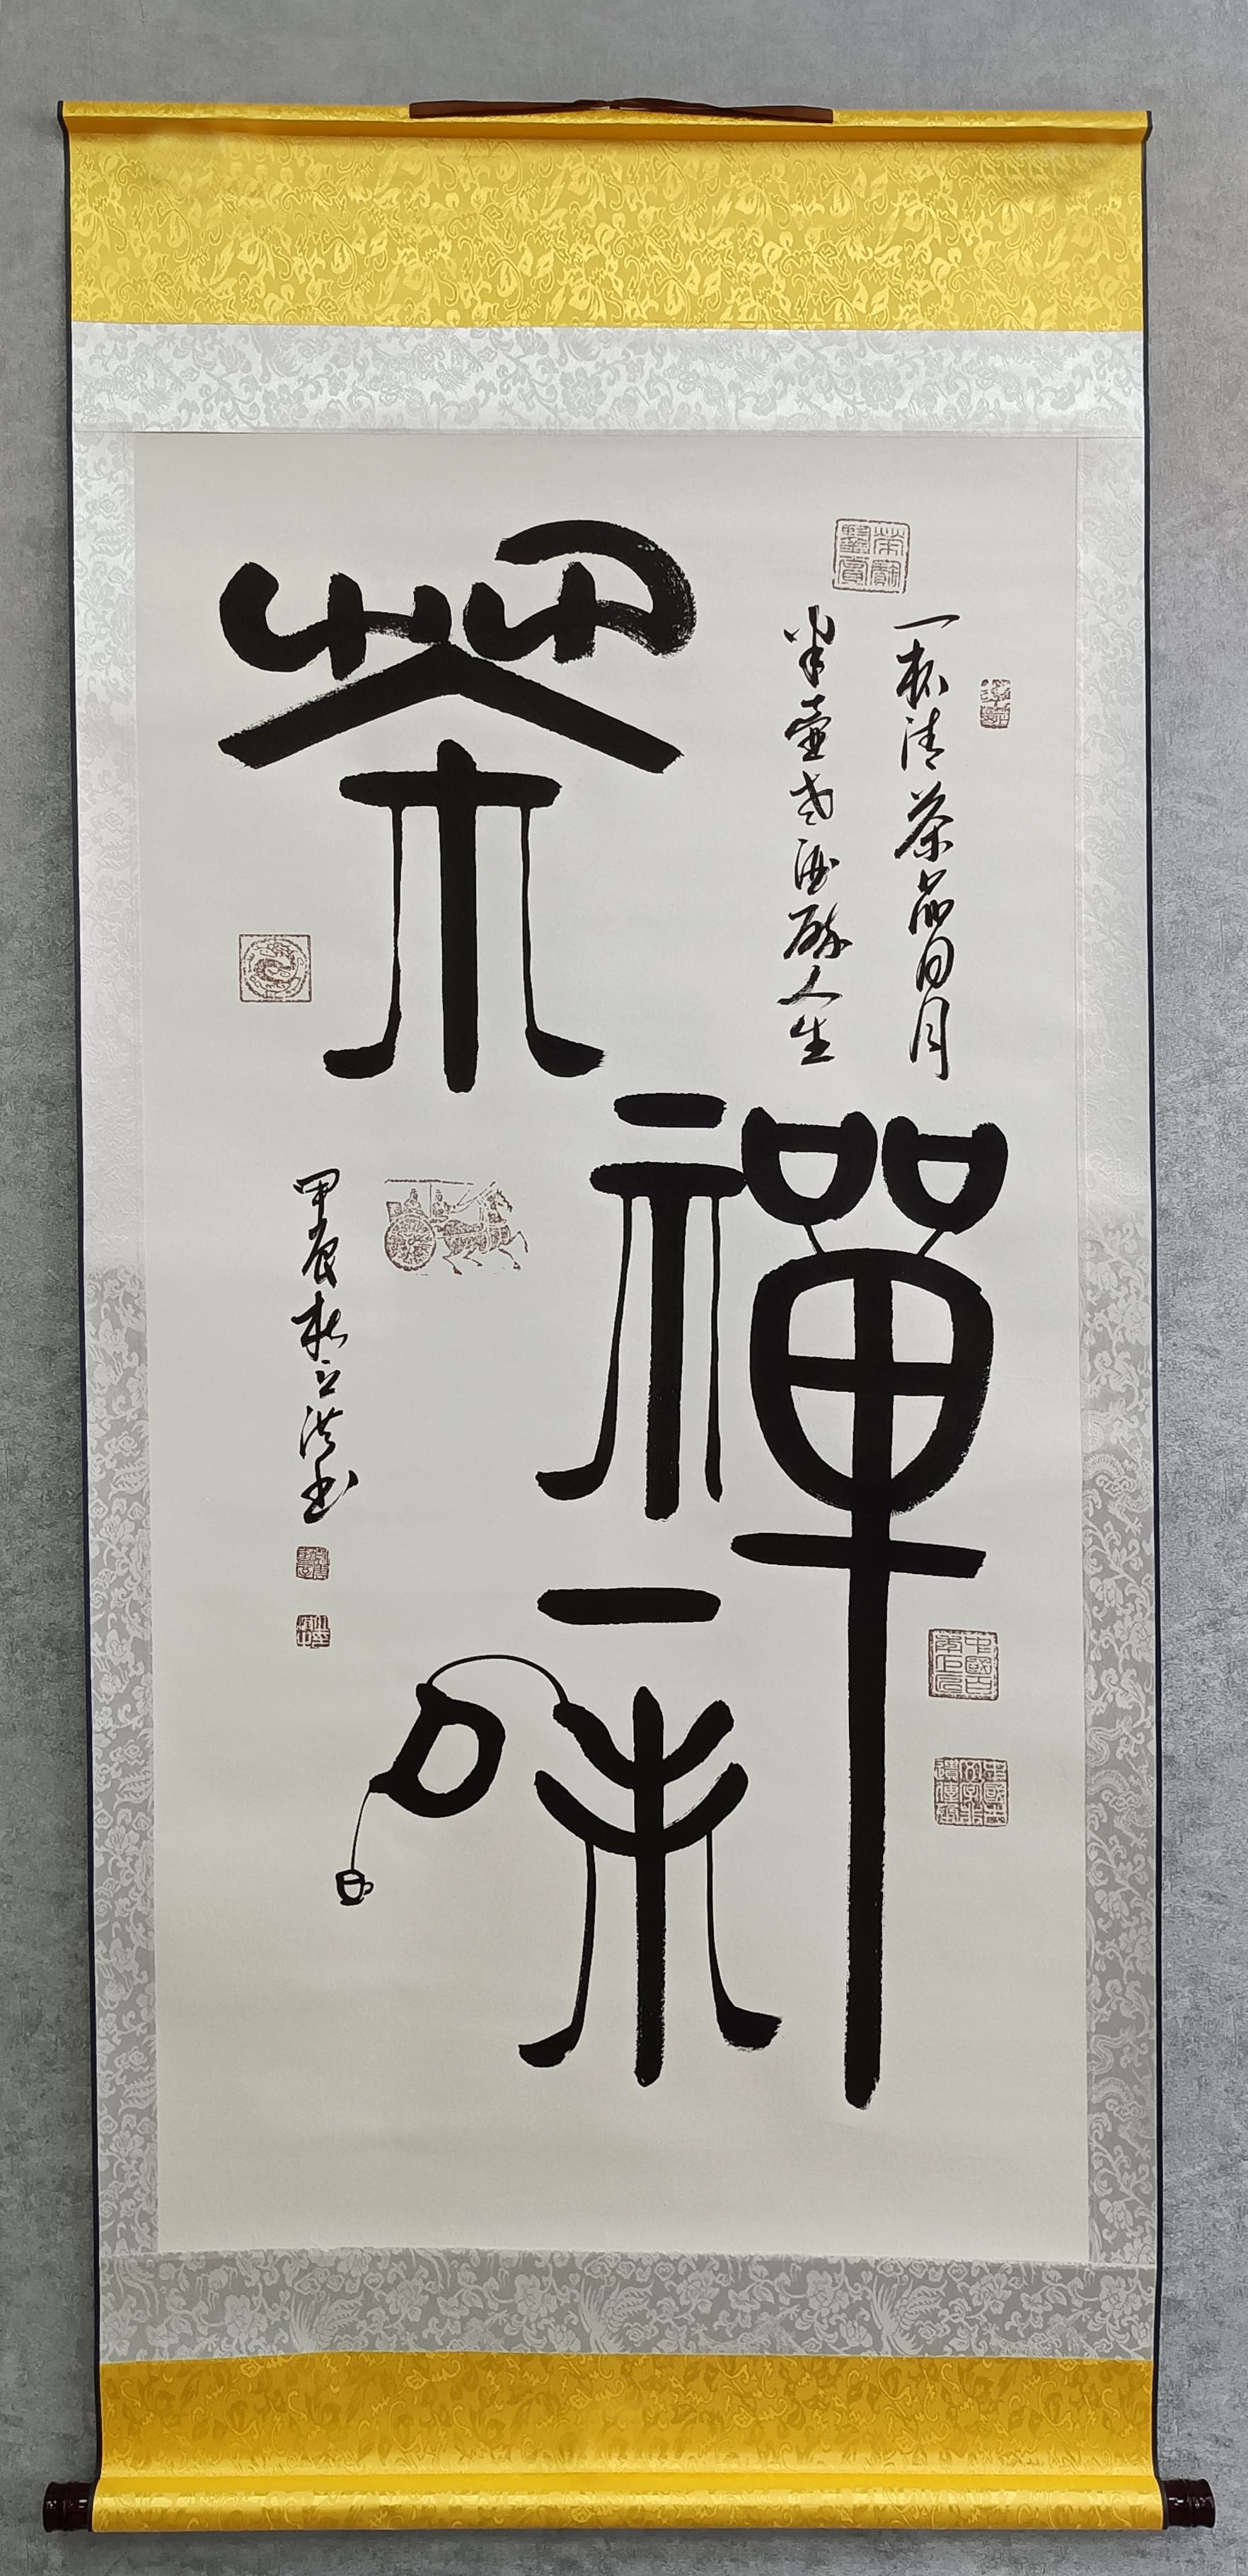 茶禪一味
一杯清茶品日月
半壺老酒醉人生
甲辰 立洪书